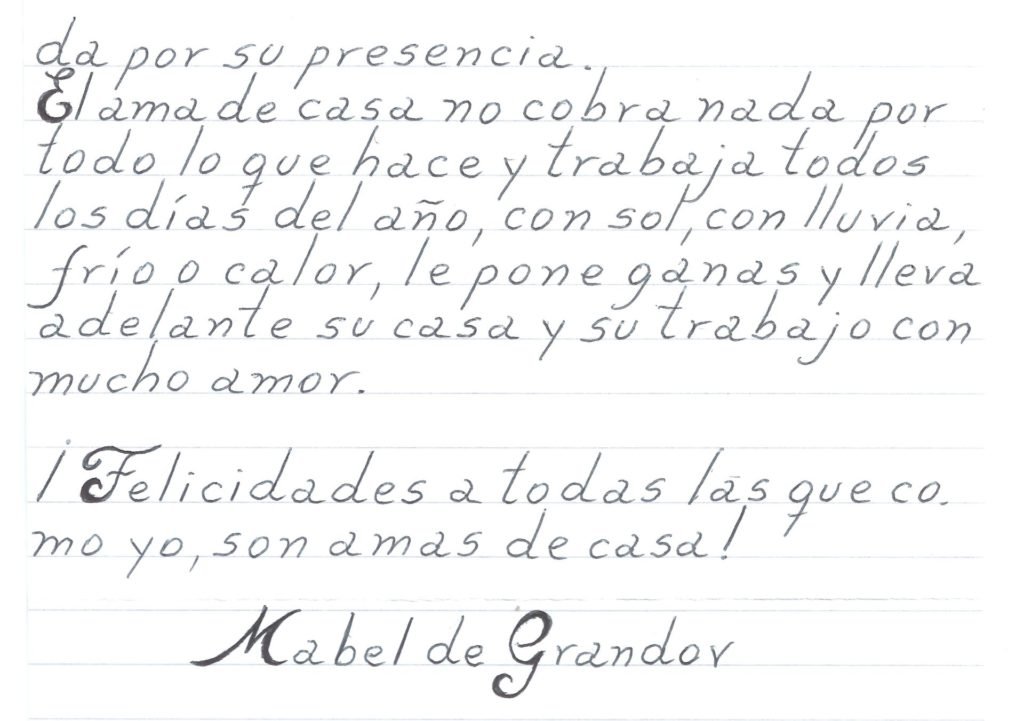 da por su presencia.
El ama de casa no cobra nada por
todo lo que hace y trabaja todos
los días del año, con sol, con lluvia,
frío o calor, le pone ganas y lleva
adelante su casa y su trabajo con
mucho amor.
¡Felicidades a todas las que co.
mo yo, son amas de casa!
Mabel de Grandov